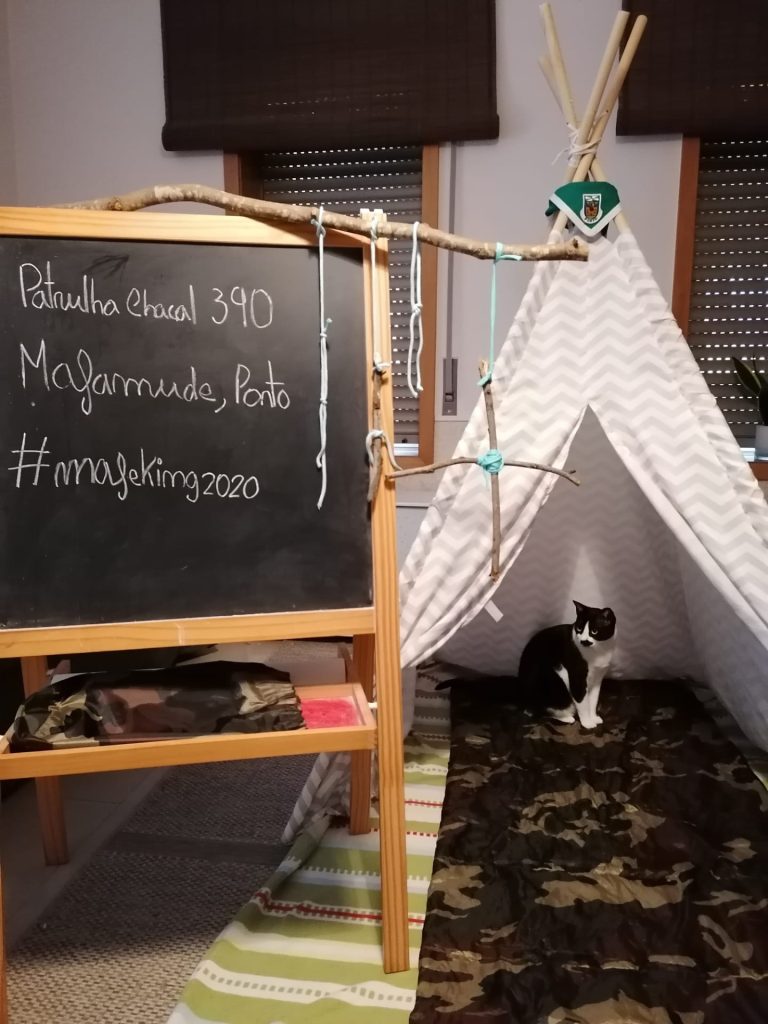 Patrulha Chacal 390
Mafamude, Porto
#mafeking2020